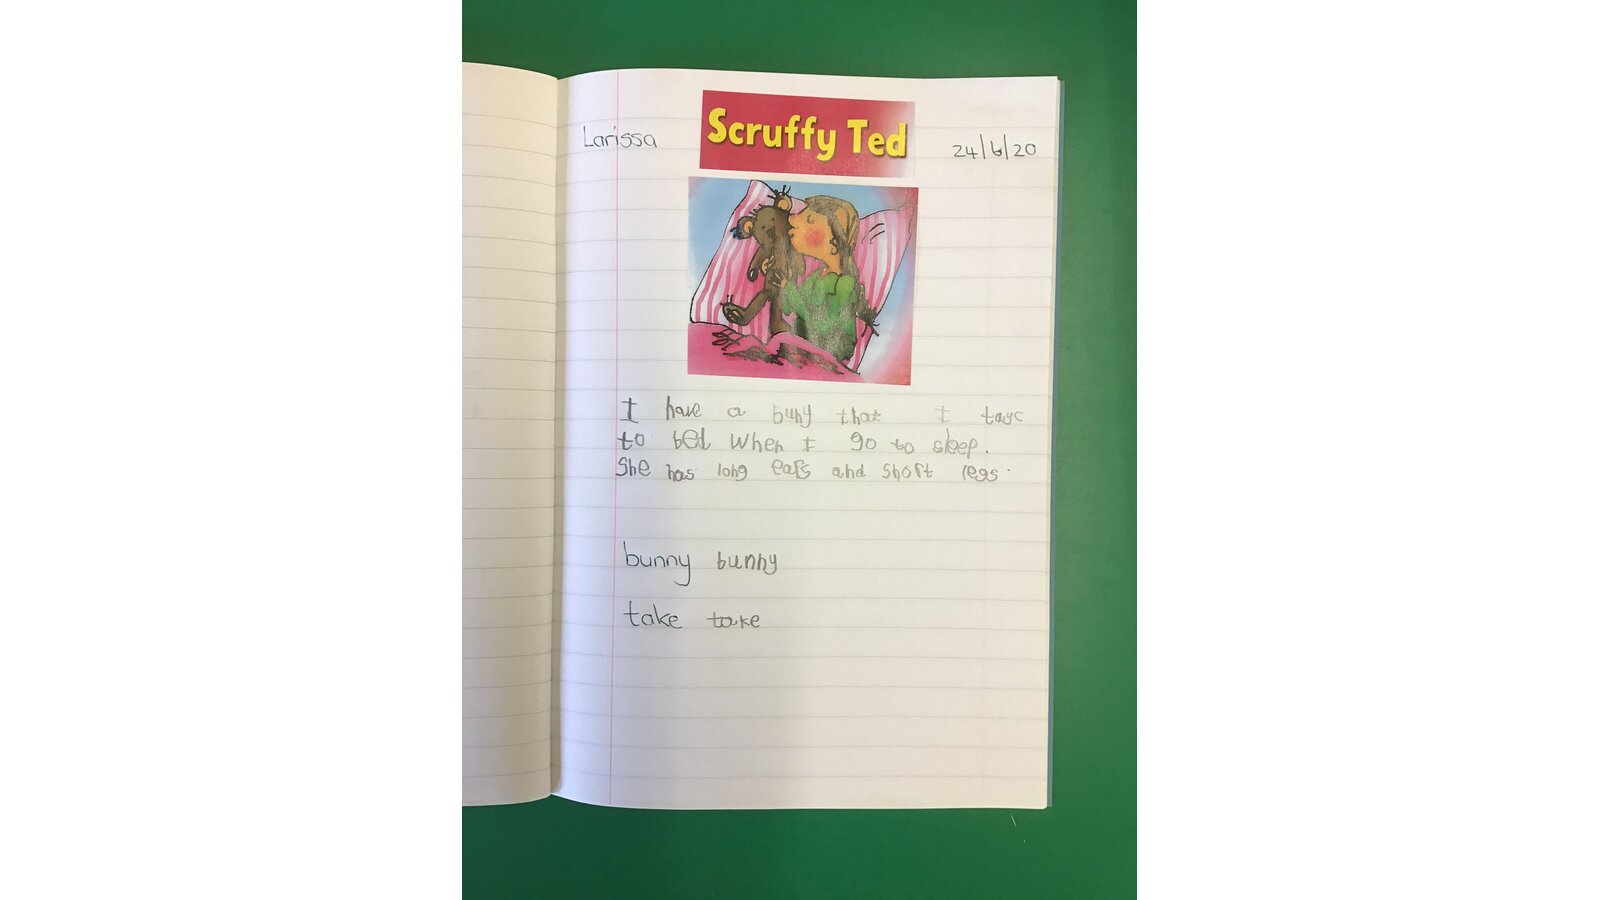 Larissa
Scruffy Ted
24/6/20
I have a buny that I tayc
to bed when I go to sleep.
She has long ears and short legs.
bunny bunny
take take